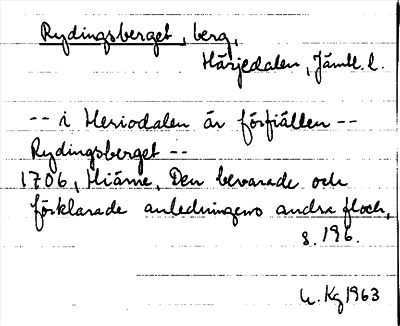 Rydingsberget, berg,
Härjedalen, Jämtl. l.
-- i Heriodalen är förfiällen --
Rydingsberget --
1706, Hiärne, Den bevarade och
förklarade anledningens andra flock,
s. 196.
Kg 1963